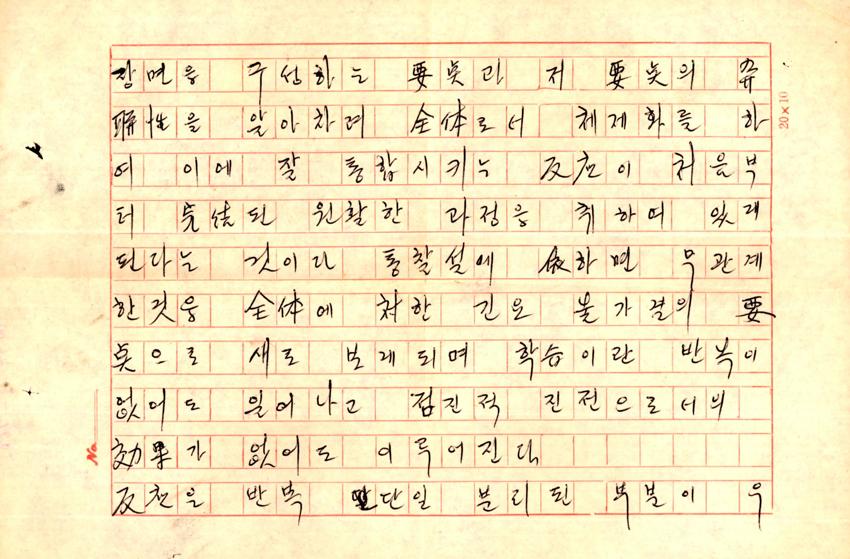 장면을 구성하는 要点과 저 要点의 関
聯性을 알아차려 全体로서 체제화를 하
여 이에 잘 통합시키는 反応이 처음부
터 完結된 원활한 과정을 취하며 있게
된다는 것이다 통찰설에 依하면 무관계
한것을 全体에 対한 긴요 불가결의 要
点으로 새로 보게되며 학습이란 반복이
없어도 일어나고 점진적 진전으로서의
効果가 없어도 이루어진다.
反応을 반복 단일 분리된 부분이 우
No.
20×10